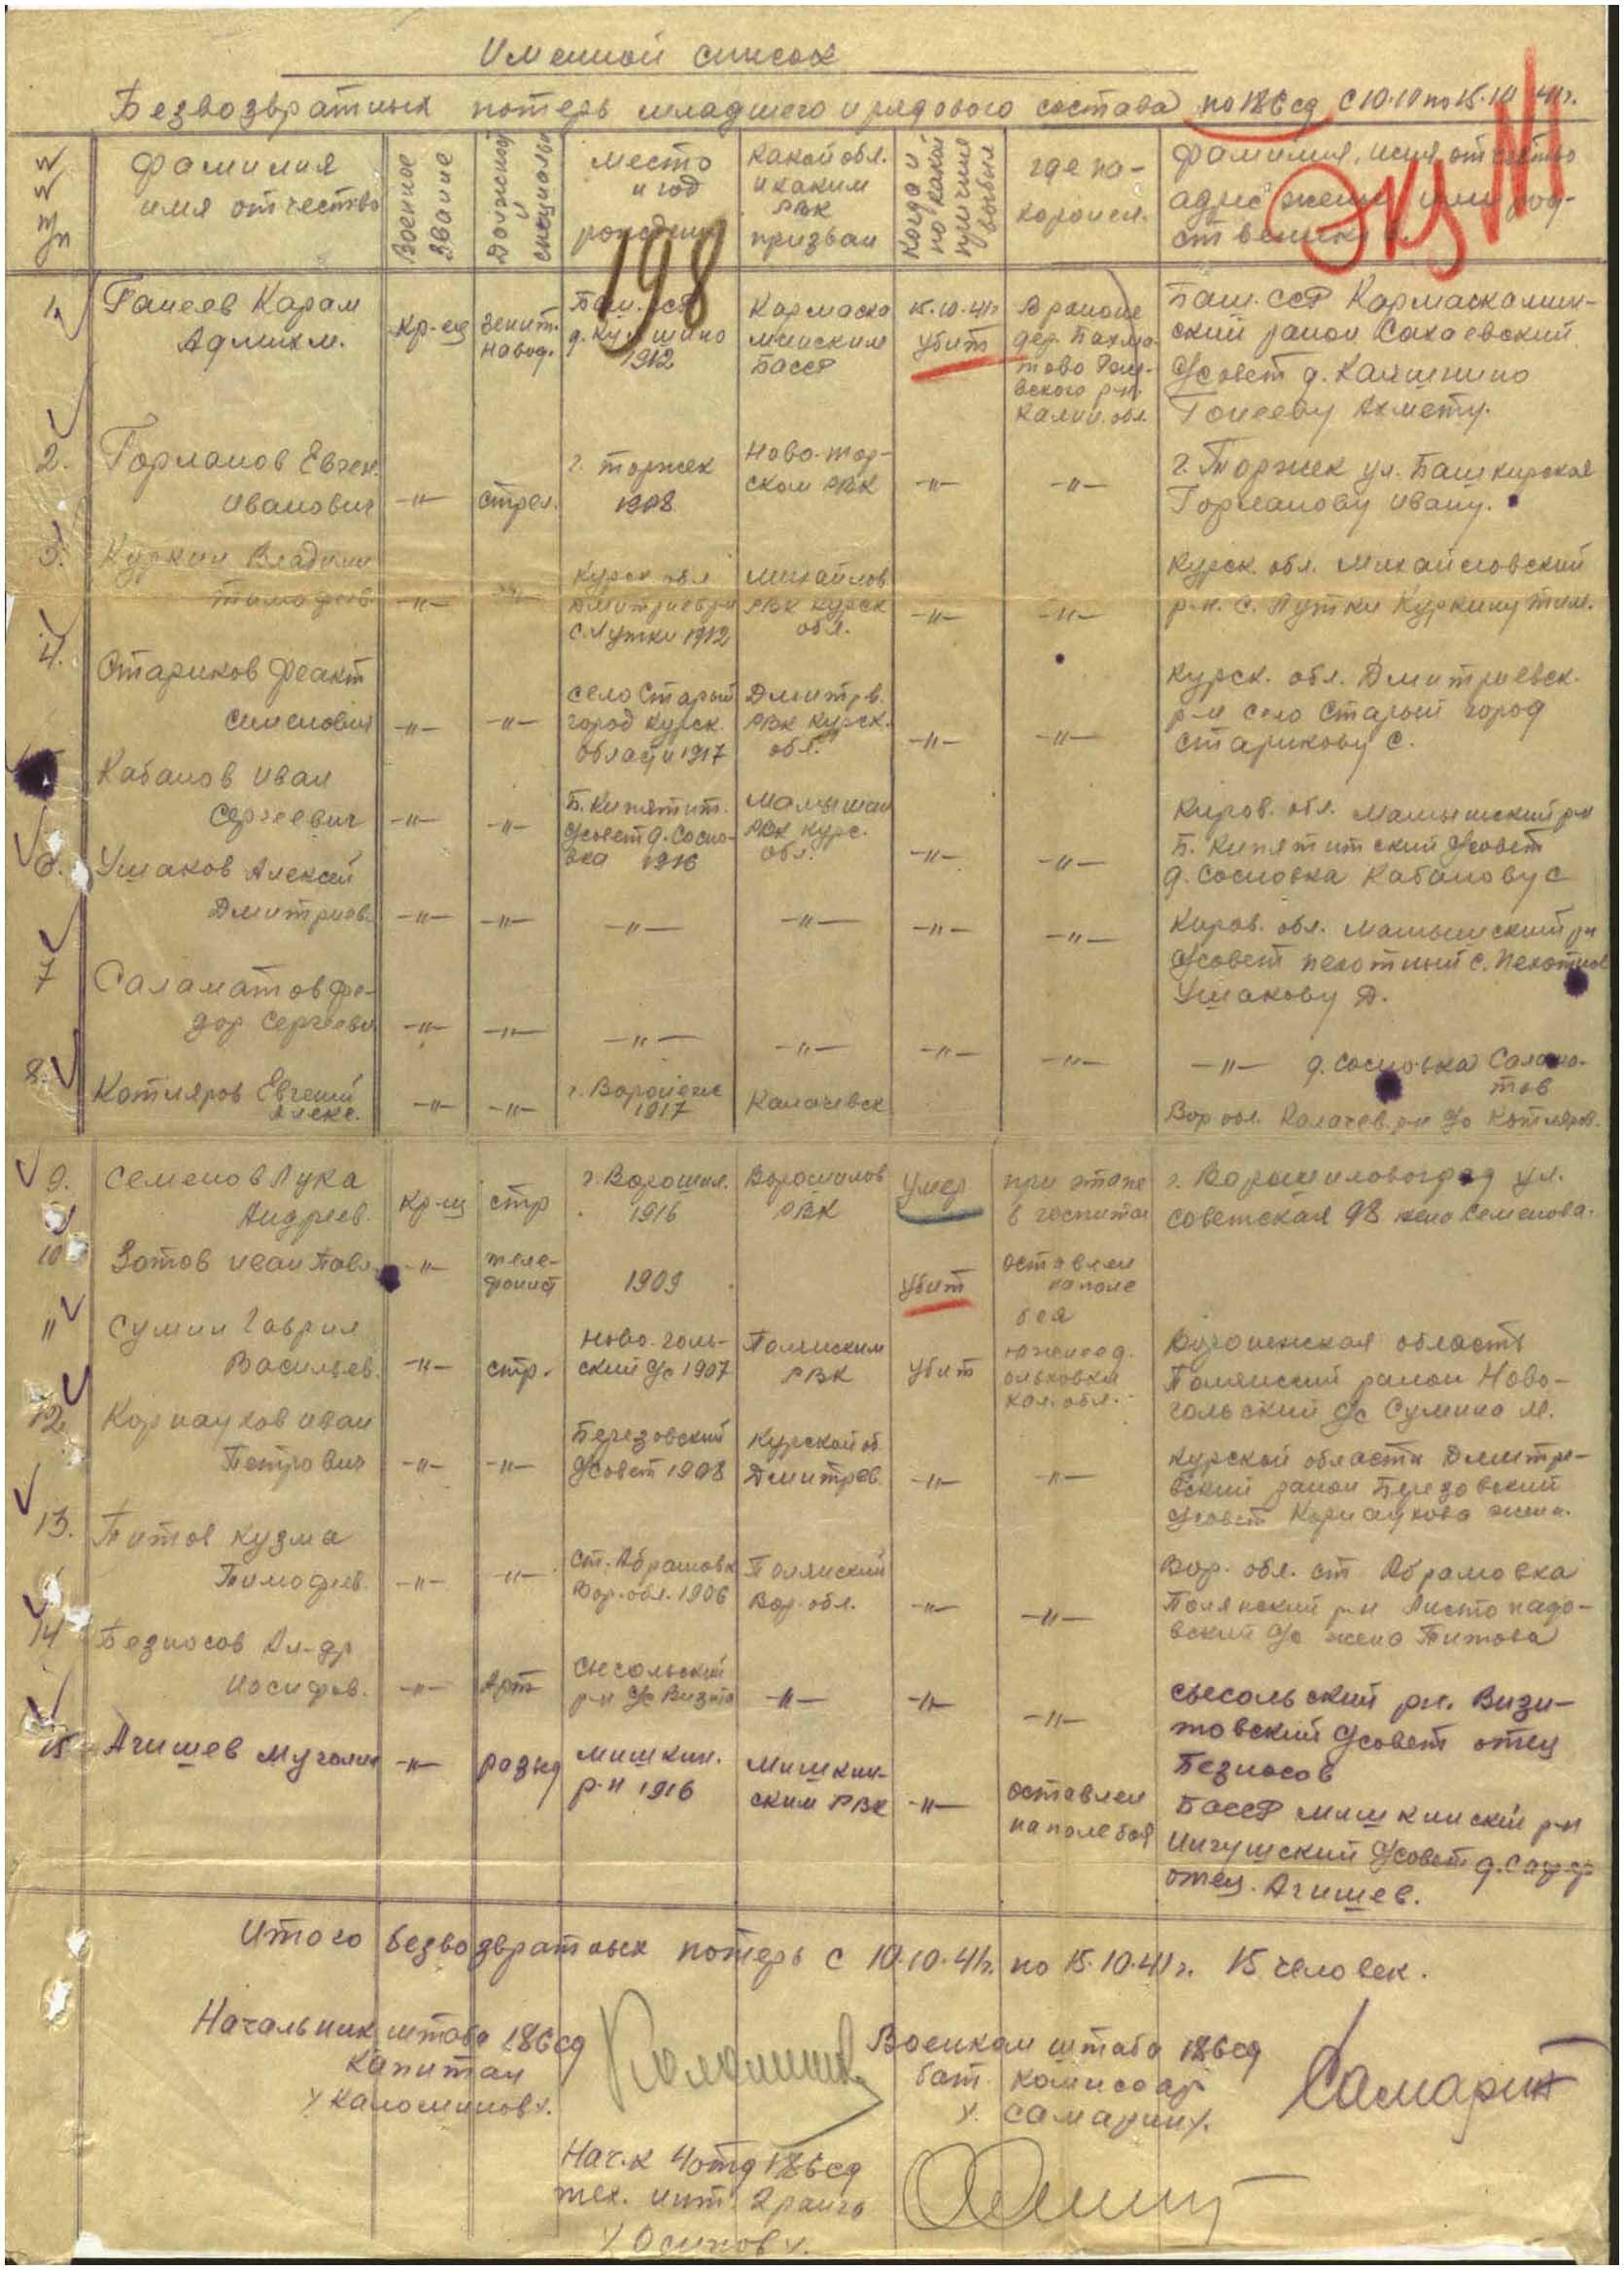 Именной список
Безвозвратных потерь младшего и рядового состава по 186 сд с 10.10 по 15.10 41г.
№№ п/п
фамилия имя отчество
Военное звание
Должность и специальн
место и год рождения
Какой обл. и каким РВК призван
Когда и по какой причине выбыл
где похоронен.
фамилия, имя, отчество адрес жены или родственников.
198
Экз
1.
Ганеев Карам
кр-ец
зенит. навод.
1912
Кармаска
минским
БАССР
15.10.41г
убит
В районе
дер.
Калин. обл.
Баш. ССР Кармаскалин-
ский район Сахаевский
с/совет д.
Ахмету.
2.
Горланов Евген.
Иванович
—"—
стрел.
г. Торжек
1908
Ново-тор-
ском РВК
—"—
—"—
г. Торжек ул. Башкирская
Горланову Ивану.
3.
Куркин Владим
Тимофеев.
—"—
—"—
Курск обл
с. Лутки 1912
Михайлов
РВК Курск
обл.
—"—
—"—
Курск. обл. Михайловский
р-н. с. Лутки Куркину Тим.
4.
Стариков Феакт
Семенович
—"—
—"—
село Старый
город Курск.
области 1917
Дмитрв.
РВК Курск.
обл.
—"—
—"—
Курск. обл. Дмитриевск.
р-н село Старый город
Старикову С.
Кабанов Иван
Сергеевич
—"—
—"—
с/совет д. Сосно-
вка 1916
РВК Курс.
обл.
—"—
—"—
Киров. обл.
д. Сосновка Кабанову С
6.
Ушаков Алексей
Дмитриев.
—"—
—"—
—"—
—"—
—"—
—"—
Киров. обл.
Ушакову Д.
7
Саламатов Фе-
дор Сергееви
—"—
—"—
—"—
—"—
—"—
—"—
—"— д. Сосновка Салама-
тов
8.
Котляров Евгений
Алекс.
—"—
—"—
1917
Калачевск
Вор обл. Калачев. р-н с/с Котляров.
9.
Семенов Лука
Андреев.
кр-ец
стр
г. Ворошил.
1916
Ворошилов
РВК
умер
при этапе
в госпитал
г. Ворошиловоград ул.
Советская 98 жена Семенова.
10
Зотов Иван Павл
—"—
теле-
фонист
1909
убит
оставлен
на поле
боя
11
Сумин Гаврил
Васильев.
—"—
стр.
Ново-голь-
ский с/с 1907
РВК
убит
южнее д.
ольховка
кал. обл.
Воронежская область
район Ново-
гольский с/с Сумина М.
12.
Карнаухов Иван
Петрович
—"—
—"—
Березовский
с/совет 1908
Курской об
Дмитрев.
—"—
—"—
Курской области Дмитри-
вский район Березовский
с/совет Карнаухова жена.
13.
Титов Кузма
Тимофеев.
—"—
—"—
ст. Абрамовк
Вор. обл. 1906
Вор. обл.
—"—
—"—
Вор. обл. ст Абрамовка
р-н Листопадо-
вский с/с жена Титова
14
Безносов Ал-др
Иосифов.
—"—
Арт
Сысольский
р-н с/с Визита
—"—
—"—
—"—
Сысольский рн. Визи-
товский с/совет отец
Безносов
15
Агишев
—"—
развед
Мишкин.
р-н 1916
Мишкин-
ским РВК
—"—
оставлен
на поле боя
БАССР Мишкинский р-н
с/совет
отец. Агишев.
Итого безвозвратных потерь с 10.10.41г. по 15.10.41г. 15 человек.
Начальник штаба 186 сд
Капитан
/Каломинов/.
Военком штаба 186 сд
бат. комисар
/Самарин/.
Самарин
Нач-к 4 отд 186 сд
тех. инт. 2 ранга
/Осипов/.